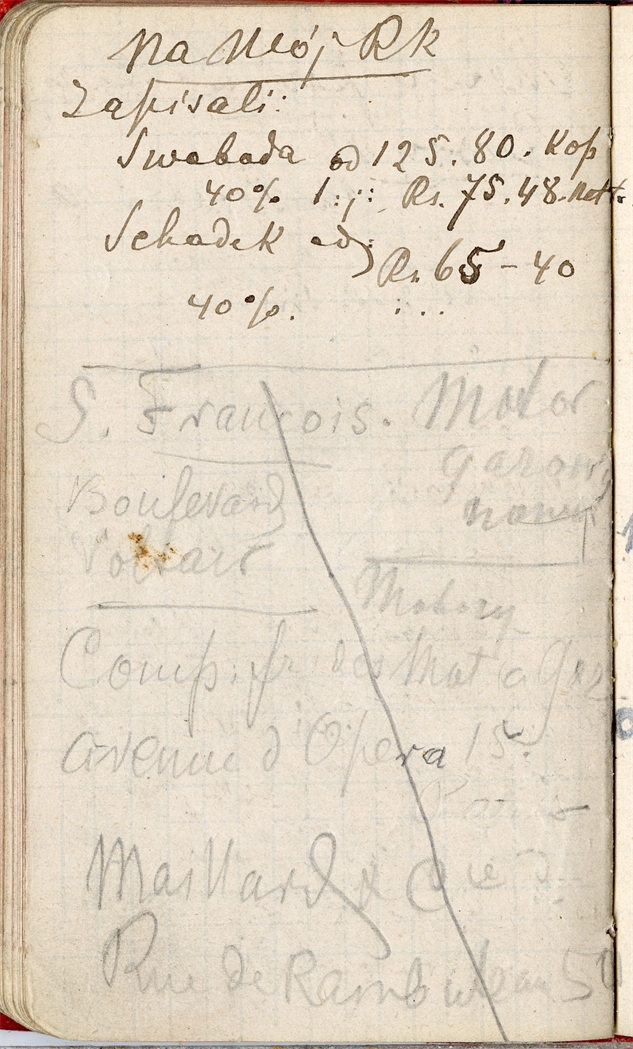 Na Mój Rk
Zapisali:
Swoboda od 125.80. Kop
40% 1:j: Rs. 75.48. nett.
Schadek od:
Rs. 65 - 40
40%. . . .
S. François.
Boulevard
Voltair
Motor
gazowy
Motory
Comp. fr. des Mot a Gaz
Avenue d'Opera 15.
Paris
Maillard & Cie
Rue de Rambuteau 50